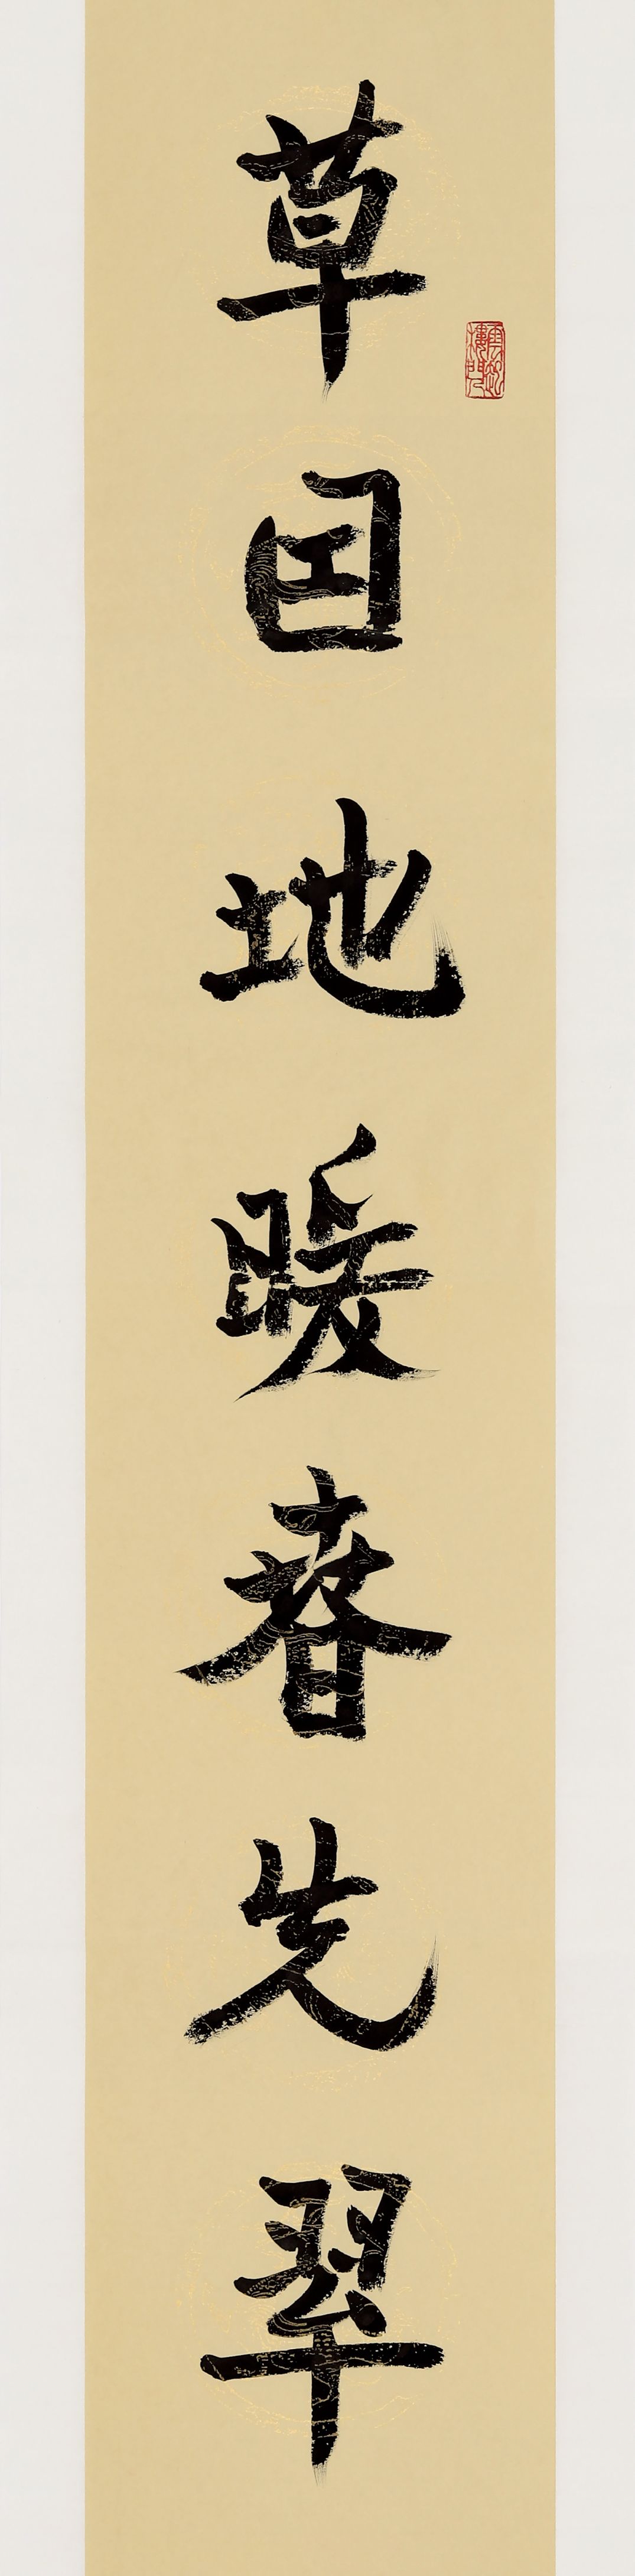 草因地暖春先翠